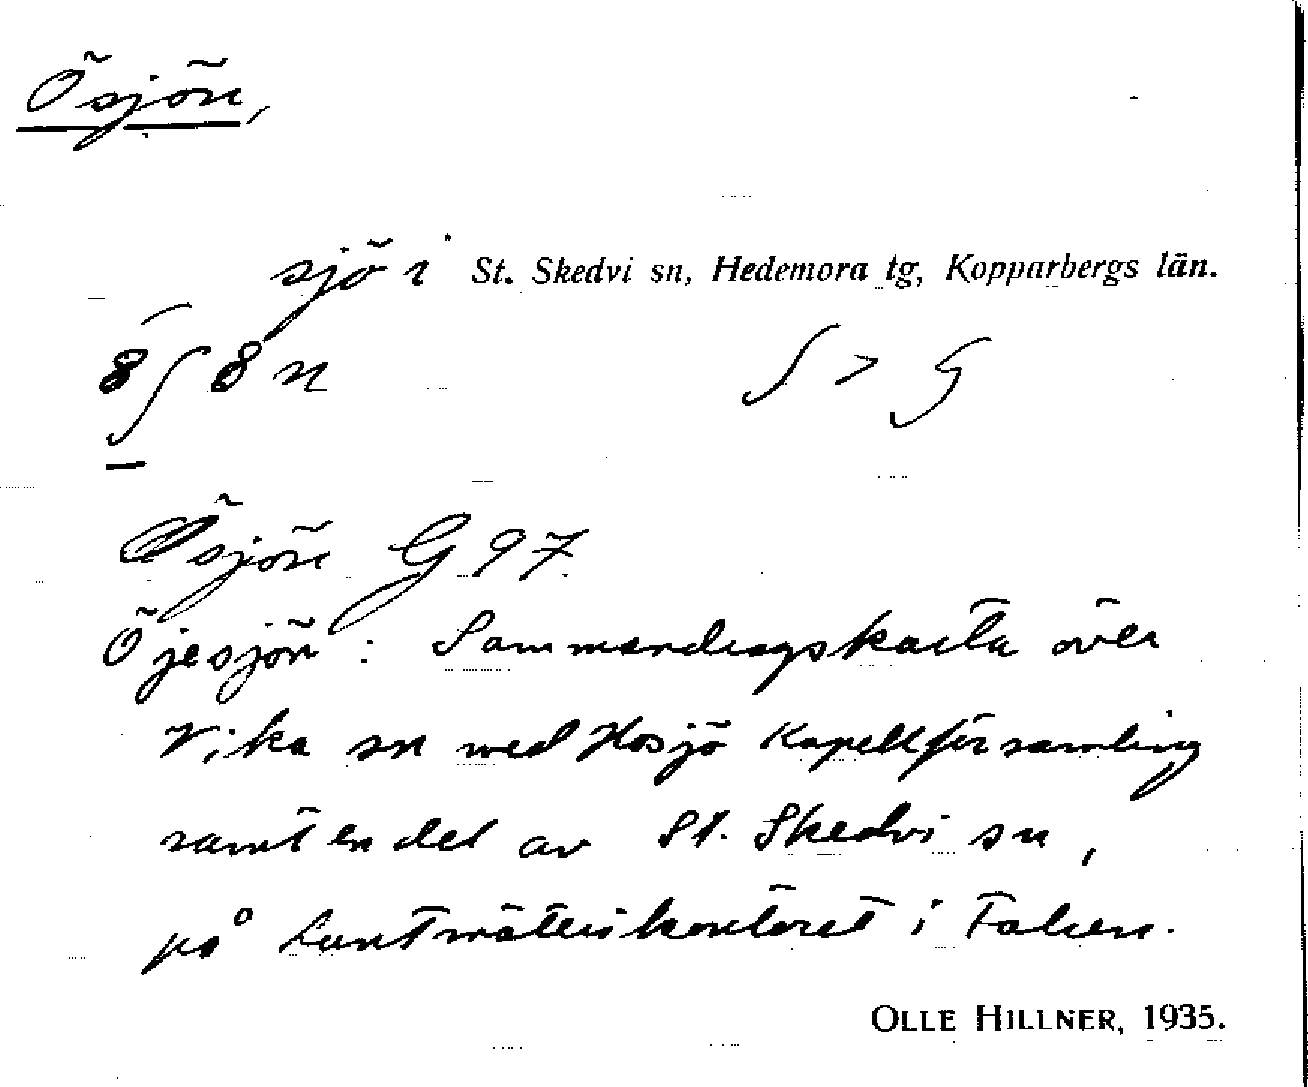 Ösjön,
sjö i St. Skedvi sn, Hedemora tg, Kopparbergs län.
Ösjön G 97
Öjesjön: Sammandragskarta över
Vika sn med Hosjö Kapellförsamling
samt en del av St. Skedvi sn,
på Lantmäterikontoret i Falun.
OLLE HILLNER, 1935.